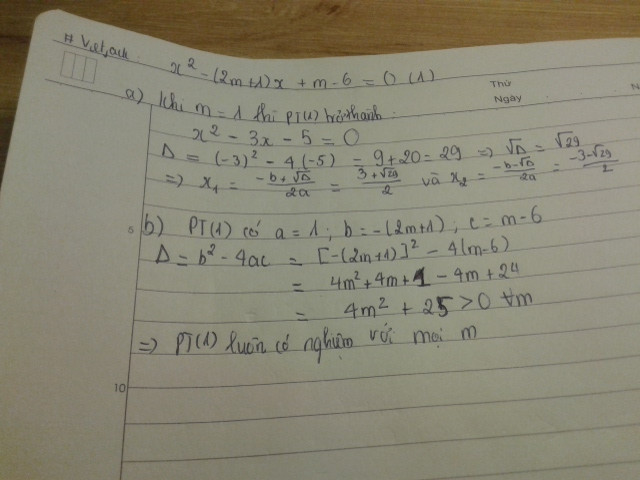 # Vietjack:
x² - (2m+1)x + m - 6 = 0 (1)
Thứ
Ngày
a) Khi m = 1 thì PT(1) trở thành:
x² - 3x - 5 = 0
Δ = (-3)² - 4(-5) = 9 + 20 = 29 => √Δ = √29
=> x₁ = (-b+√Δ)/2a = (3+√29)/2 và x₂ = (-b-√Δ)/2a = (-3-√29)/2
5
b) PT(1) có a = 1; b = -(2m+1); c = m-6
Δ = b² - 4ac = [-(2m+1)]² - 4(m-6)
= 4m² + 4m + 1 - 4m + 24
= 4m² + 25 > 0 ∀m
=> PT(1) luôn có nghiệm với mọi m
10